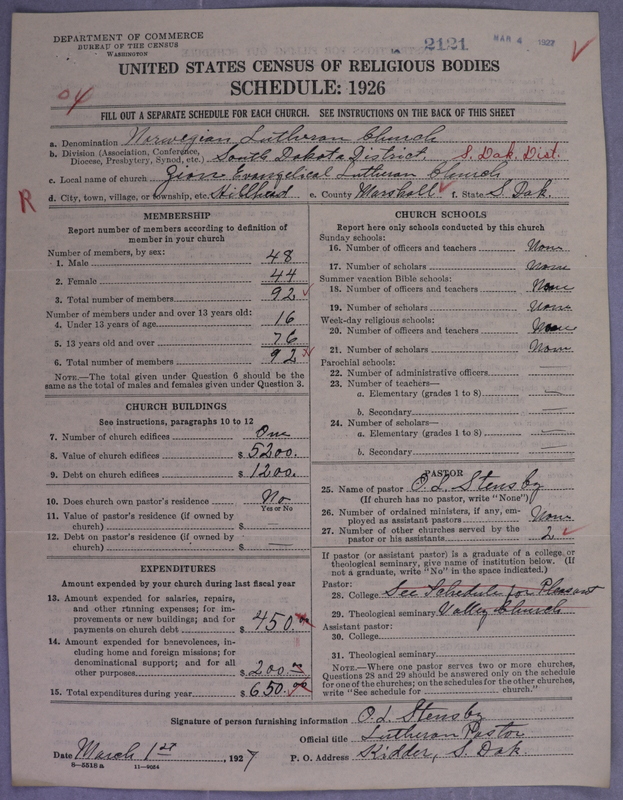 DEPARTMENT OF COMMERCE
BUREAU OF THE CENSUS
WASHINGTON
2121
MAR 4 1927
UNITED STATES CENSUS OF RELIGIOUS BODIES
SCHEDULE: 1926
04
FILL OUT A SEPARATE SCHEDULE FOR EACH CHURCH. SEE INSTRUCTIONS ON THE BACK OF THIS SHEET
a. Denomination Norwegian Lutheran Church
b. Division (Association, Conference, Diocese, Presbytery, Synod, etc.) South Dakota District. S. Dak. Dist.
c. Local name of church Zions Evangelical Lutheran Church
R
d. City, town, village, or township, etc. Hillhead e. County Marshall f. State S. Dak.
MEMBERSHIP
Report number of members according to definition of
member in your church
Number of members, by sex:
1. Male 48
2. Female 44
3. Total number of members 92
Number of members under and over 13 years old:
4. Under 13 years of age 16
5. 13 years old and over 76
6. Total number of members 92
NOTE.—The total given under Question 6 should be
same as the total of males and females given under Question 3.
CHURCH BUILDINGS
See instructions, paragraphs 10 to 12
7. Number of church edifices One
8. Value of church edifices $ 5200.
9. Debt on church edifices $ 1200.
10. Does church own pastor's residence No
Yes or No
11. Value of pastor's residence (if owned by
church) $
12. Debt on pastor's residence (if owned by
church) $
EXPENDITURES
Amount expended by your church during last fiscal year
13. Amount expended for salaries, repairs,
and other running expenses; for im-
provements or new buildings; and for
payments on church debt $ 450.00
14. Amount expended for benevolences, in-
cluding home and foreign missions; for
denominational support; and for all
other purposes $ 200.00
15. Total expenditures during year $ 650.00
CHURCH SCHOOLS
Report here only schools conducted by this church
Sunday schools:
16. Number of officers and teachers None
17. Number of scholars None
Summer vacation Bible schools:
18. Number of officers and teachers None
19. Number of scholars None
Week-day religious schools:
20. Number of officers and teachers None
21. Number of scholars None
Parochial schools:
22. Number of administrative officers —
23. Number of teachers—
a. Elementary (grades 1 to 8) —
b. Secondary —
24. Number of scholars—
a. Elementary (grades 1 to 8) —
b. Secondary —
PASTOR
25. Name of pastor O. L. Stensby
(If church has no pastor, write "None")
26. Number of ordained ministers, if any, em-
ployed as assistant pastors None
27. Number of other churches served by the
pastor or his assistants 2
If pastor (or assistant pastor) is a graduate of a college or
theological seminary, give name of institution below. (If
not a graduate, write "No" in the space indicated.)
Pastor:
28. College See Schedule for Pleasant
29. Theological seminary Valley Church
Assistant pastor:
30. College
31. Theological seminary
NOTE.—Where one pastor serves two or more churches,
Questions 28 and 29 should be answered only on the schedule
for one of the churches; on the schedules for the other churches,
write "See schedule for ........ church."
Signature of person furnishing information O. L. Stensby
Official title Lutheran Pastor
Date March 1st, 1927 P. O. Address Kidder, S. Dak.
8—5518 a 11—9024